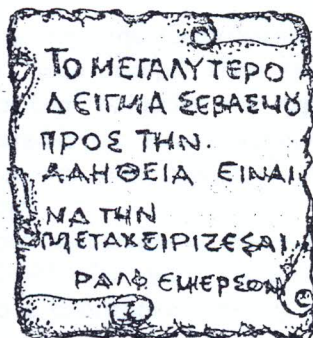 ΤΟ ΜΕΓΑΛΥΤΕΡΟ
ΔΕΙΓΜΑ ΣΕΒΑΣΜΟΥ
ΠΡΟΣ ΤΗΝ
ΑΛΗΘΕΙΑ ΕΙΝΑΙ
ΝΑ ΤΗΝ
ΜΕΤΑΧΕΙΡΙΖΕΣΑΙ.
ΡΑΛΦ ΕΜΕΡΣΟΝ